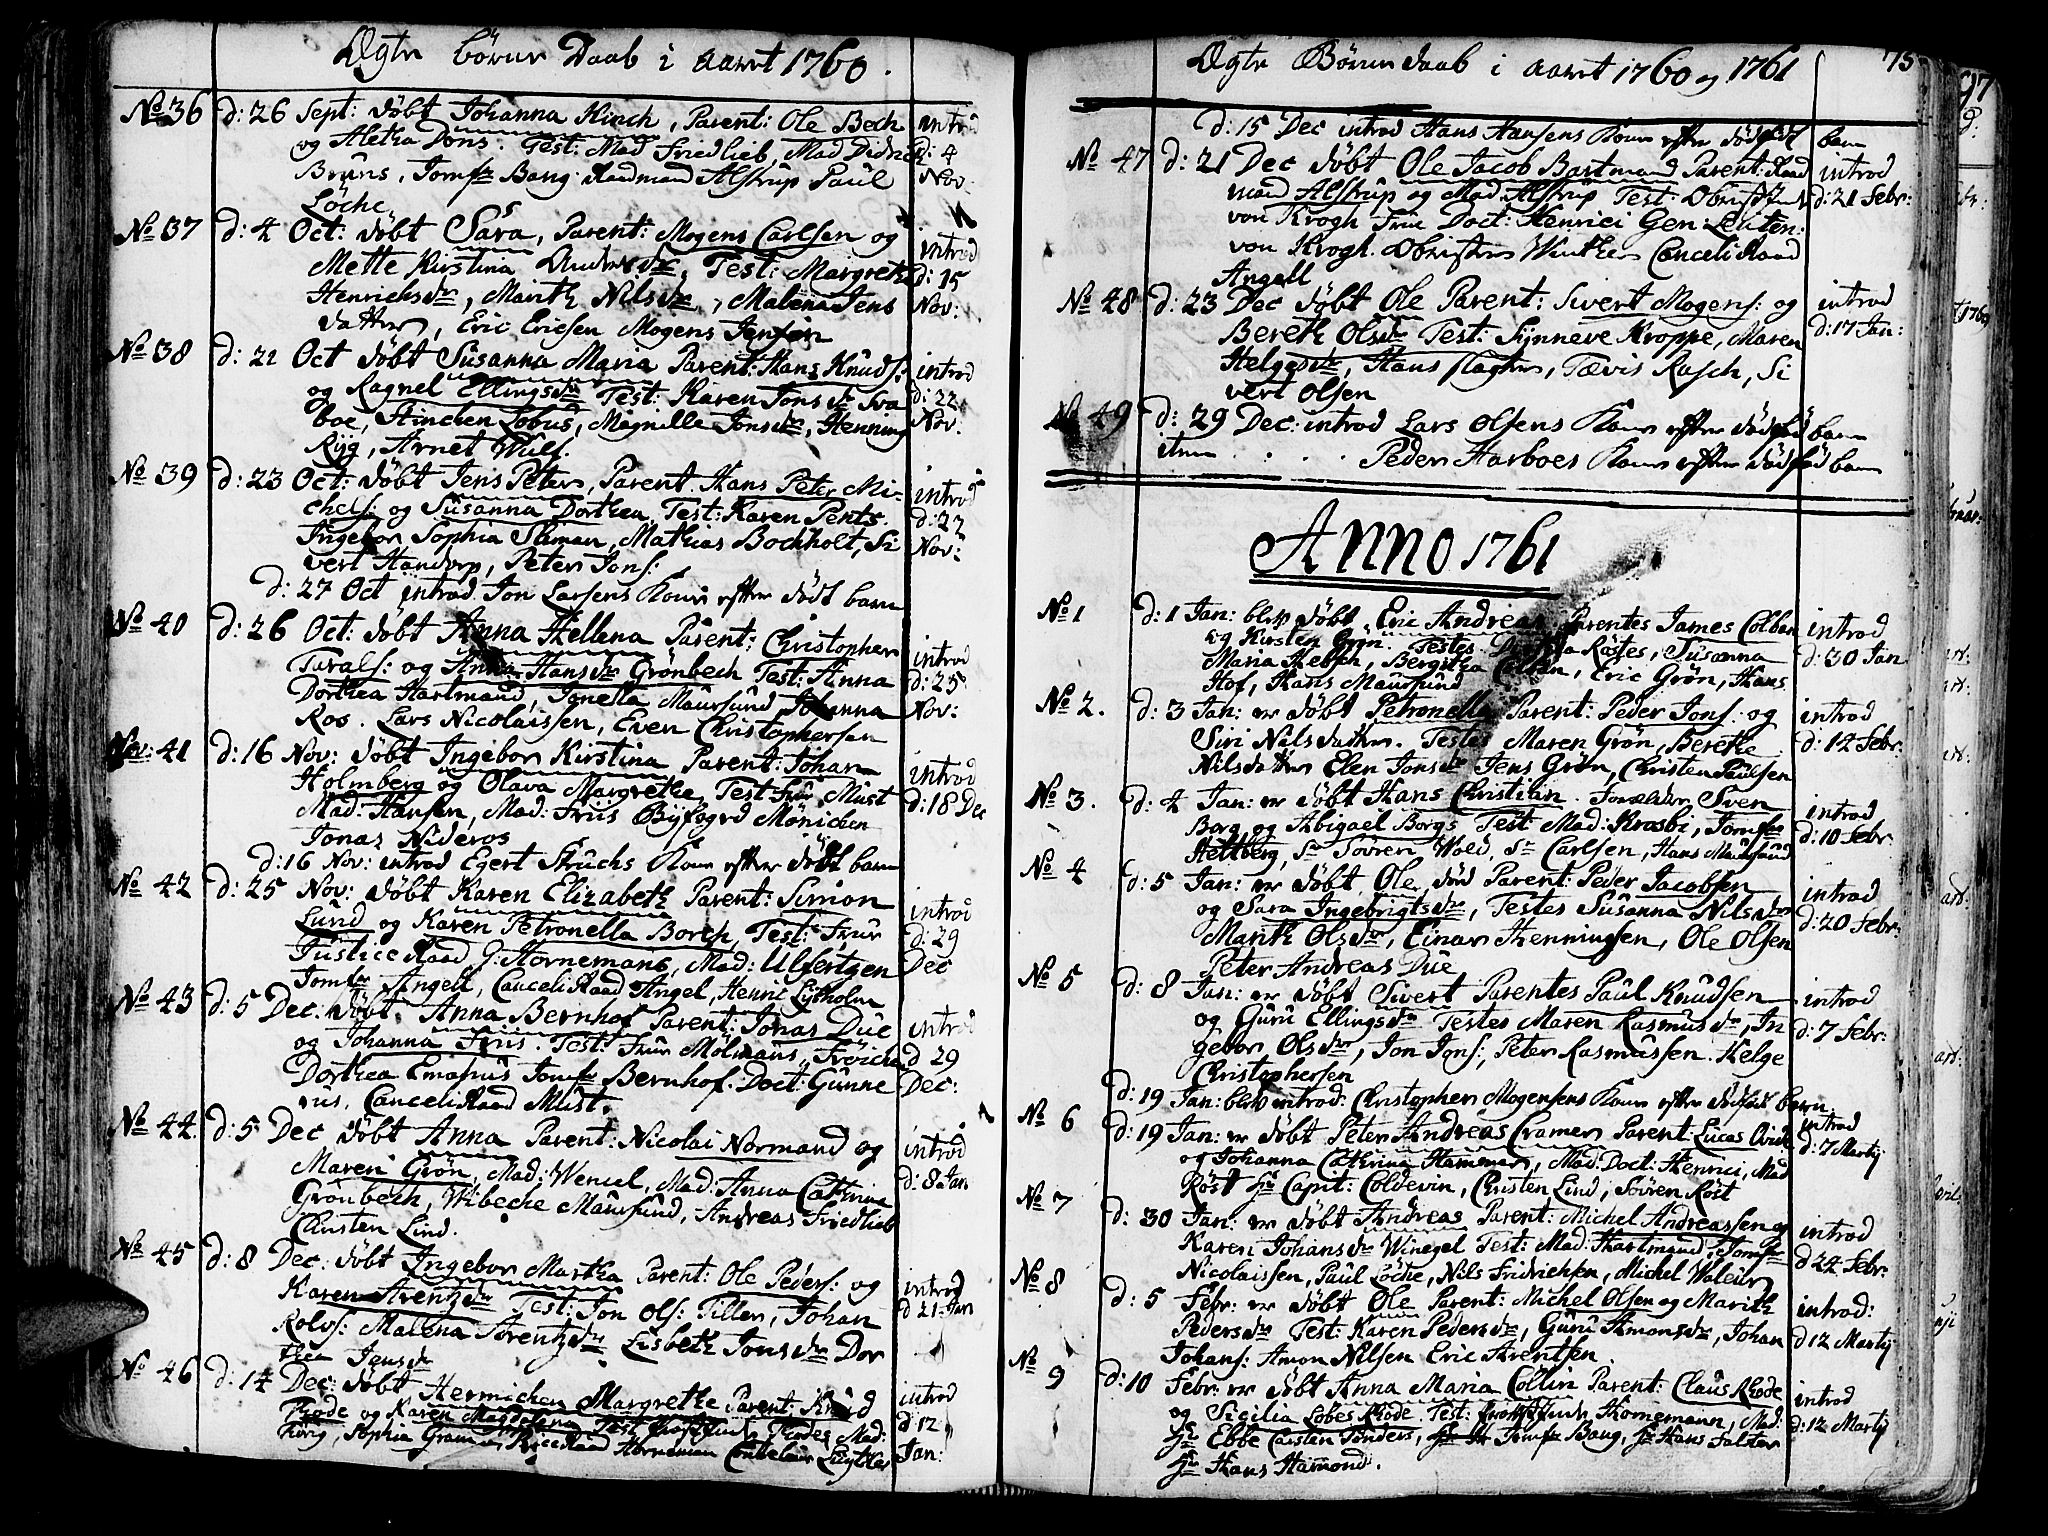 Ægte börns Daab i aaret 1760.
No 36 d: 26 Sept: döbt Johanna Hinch, Parent: Ole Bech introd
og Aletha Dons. Test: Mad Friedlieb, Mad Didric d: 4
Bruns, Jomfr Bang Raadmand Alstrup Paul Nov:
Löche
No 37 d: 4 Oct: döbt Sara, Parent: Mogens Carlsen og introd
Mette Kirstina Andersdr, Test: Margrete d: 15
Henrichsdr, Marith Nilsdr, Malena Jens Nov:
datter, Eric Ericsen Mogens Jensen
No 38 d: 22 Oct döbt Susanna Maria Parent: Hans Knuds: introd
og Ragnel Ellingsdr Test: Karen Jonsdr Sva d: 22
boe, Hinchen Lobus, Magnille Jonsdr, Henning Nov:
Ryg, Arnet Wulf.
No 39 d: 23 Oct: döbt Jens Peter, Parent Hans Peter Mi- introd
chels: og Susanna Dorthea, Test: Karen Pents d: 27
Ingebor Sophia Sliman, Mathias Bochholt, Si Nov:
vert Handorp, Peter Jons:
d: 27 Oct introd Jon Larsens Kone efter dödt barn
No 40 d: 26 Oct: döbt Anna Hellena Parent: Christopher introd
Tarals: og Anna Hansdr Grönbech Test: Anna d: 25
Dorthea Hartmand, Jonella Maursund Johanna Nov:
Ros. Lars Nicolaissen, Even Christophersen
Nov: 41 d: 16 Nov: döbt Ingebor Kirstina Parent: Johan introd
Holmberg og Olava Margrethe, Test Frue Must d: 18 Dec
Mad: Hansen, Mad: Friis Byfogd Mönichen
Jonas Nideros
d: 16 Nov: introd Egert Struchs Kone efter dödt barn
No 42 d: 25 Nov: döbt Karen Elizabeth Parent: Simon introd
Lund og Karen Petronella Borch, Test: Frue d: 29
Justice Raad G: Hornemans, Mad: Ulfertgen Dec
Jomfr Angell, Canceli Raad Angel, Henric Lysholm
No 43 d: 5 Dec: döbt Anna Bernhof Parent: Jonas Due introd
og Johanna Friis. Test: Frue Mölmans, Fröichen d 29
Dorthea Emahus Jomfr Bernhof. Doct: Gunne Dec:
rus, Canceli Raad Must.
No 44. d: 5 Dec döbt Anna Parent: Nicolai Normand og introd
Maren Grön, Mad: Wencel, Mad: Anna Cathrina d: 8 Jan
Grönbech, Wibeche Maursund, Andreas Friedlieb
Christen Lind.
No 45 d: 8 Dec: döbt Ingebor Martha Parent: Ole Peders: og introd
Karen Arentzdr Test: Jon Ols: Tiller, Johan d 21 Jan
Rolvs: Malena Arentzdr Lisbeth Jonsdr Dor
thea Jensdr
No 46 d: 14 Dec: döbt Hermichen Margrethe Parent: Knud introd
Rode og Karen Magdelena Test Rodes Mad: d: 12
Rörig, Sophia Gram Raad Horneman Jan:
75
Ægte Börns daab i aaret 1760 og 1761
d: 15 Dec introd Hans Hansens Kone efter dödfödt barn
No 47 d: 21 Dec döbt Ole Jacob Bartmand Parent: Raad introd
mand Alstrup og Mad Alstrup Test: Obristl d: 21 Febr:
von Krogh Frue Doct: Henrici Gen: Leuten:
von Krogh. Obrister Winther Canceli Raad
Angell
No 48 d: 23 Dec döbt Ole Parent: Sivert Mogens: og introd
Bereth Olsdr Test: Synneve Kroppe, Maren d: 17 Jan:
Helgesdr, Hans Slagter, Tævis Rasch, Si
vert Olsen
No 49 d: 29 Dec: introd Lars Olsens Kone efter dödföd barn
item . . . Peder Harboes Kone efter dödföd barn
Anno 1761
No 1 d: 1 Jan: blev döbt Eric Andreas Parentes James Colban introd
og Kirsten Grön. Testes Röstes, Susanna d: 30 Jan
Maria Hebsch, Bergitha Colban, Eric Grön, Hans
Hof, Hans Maursund
No 2. d: 3 Jan: er döbt Petronella Parent: Peder Jons: og introd
Siri Nilsdatter. Testes Maren Grön, Berethe d: 14 Febr:
Nilsdatter Elen Jonsdr Jens Grön, Christen Paulsen
No 3. d: 4 Jan: er döbt Hans Christian. Forældre Sven introd
Borg og Abigael Borgs Test Mad: Krasbi, Jomfr d: 10 Febr:
Heltberg, Sr Sövren Wold, Sr Carlsen, Hans Maursund
No 4 d: 5 Jan: er döbt Ole död Parent: Peder Jacobsen introd
og Sara Ingebrigtsdr, Testes Susanna Nilsdr d: 20 Febr:
Marith Olsdr, Einar Henningsen, Ole Olsen
Peter Andreas Due
No 5 d: 8 Jan: er döbt Sivert Parentes Paul Knudsen introd
og Guru Ellingsdr Testes Maren Rasmusdr, In d: 7 Febr:
gebor Olsdr, Jon Jons:, Peter Rasmussen. Helge
Christophersen
d: 19 Jan: blev introd: Christopher Mogensens Kone efter dödföd barn
No 6 d: 19 Jan: er döbt Peter Andreas Cramer Parent: Lucas Qvist introd
og Johanna Cathrina Hammer, Mad: Doct: Henrici, Mad d: 7 Martij
Röst Hr Capit: Coldevin, Christen Lind, Sövren Röst
No 7 d: 30 Jan: er döbt Andreas Parent: Michel Andreassen og introd
Karen Johansdr Winegel Test: Mad: Hartmand, Jomfr d 24 Febr:
Nicolaissen, Paul Löche, Nils Fridrichsen, Michel Waleur
No 8 d: 5 Febr: er döbt Ole Parent: Michel Olsen og Marith introd:
Pedersdr Test: Karen Pedersdr, Guru Amonsdr, Johan d 12 Martij
Johans: Amon Nilsen Eric Arentsen.
No 9 d: 10 Febr: er döbt Anna Maria Collin Parent: Claus Rode introd
og Sicilia Lobes Rode. Test: Hornemann, Mad: d: 12 Martij
Hr Ebbe Carsten Tönders, Jomfr Bang, Hr Hans Falster
Hr Hans Hamond.